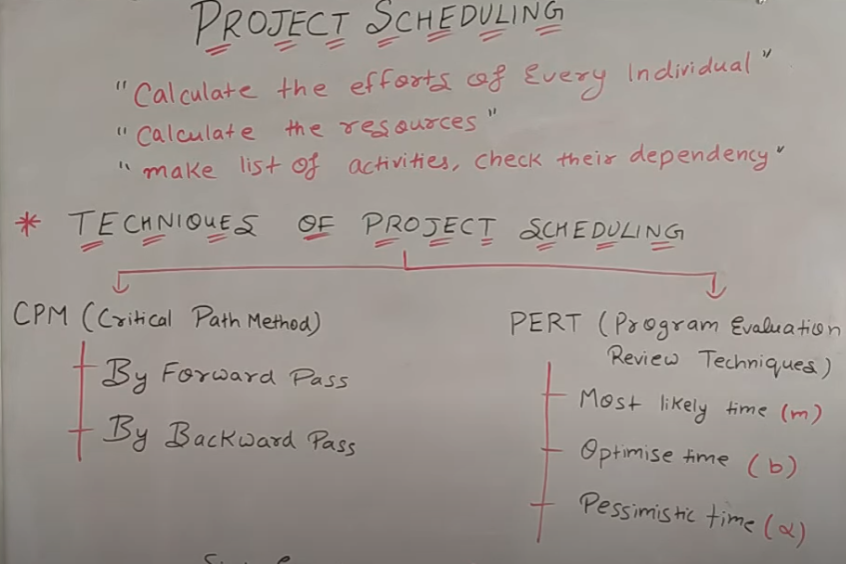 PROJECT SCHEDULING
"Calculate the efforts of Every Individual"
"Calculate the resources"
"make list of activities, check their dependency"
* TECHNIQUES OF PROJECT SCHEDULING
CPM (Critical Path Method)
By Forward Pass
By Backward Pass
PERT (Program Evaluation
Review Techniques)
Most likely time (m)
Optimise time (b)
Pessimistic time (α)